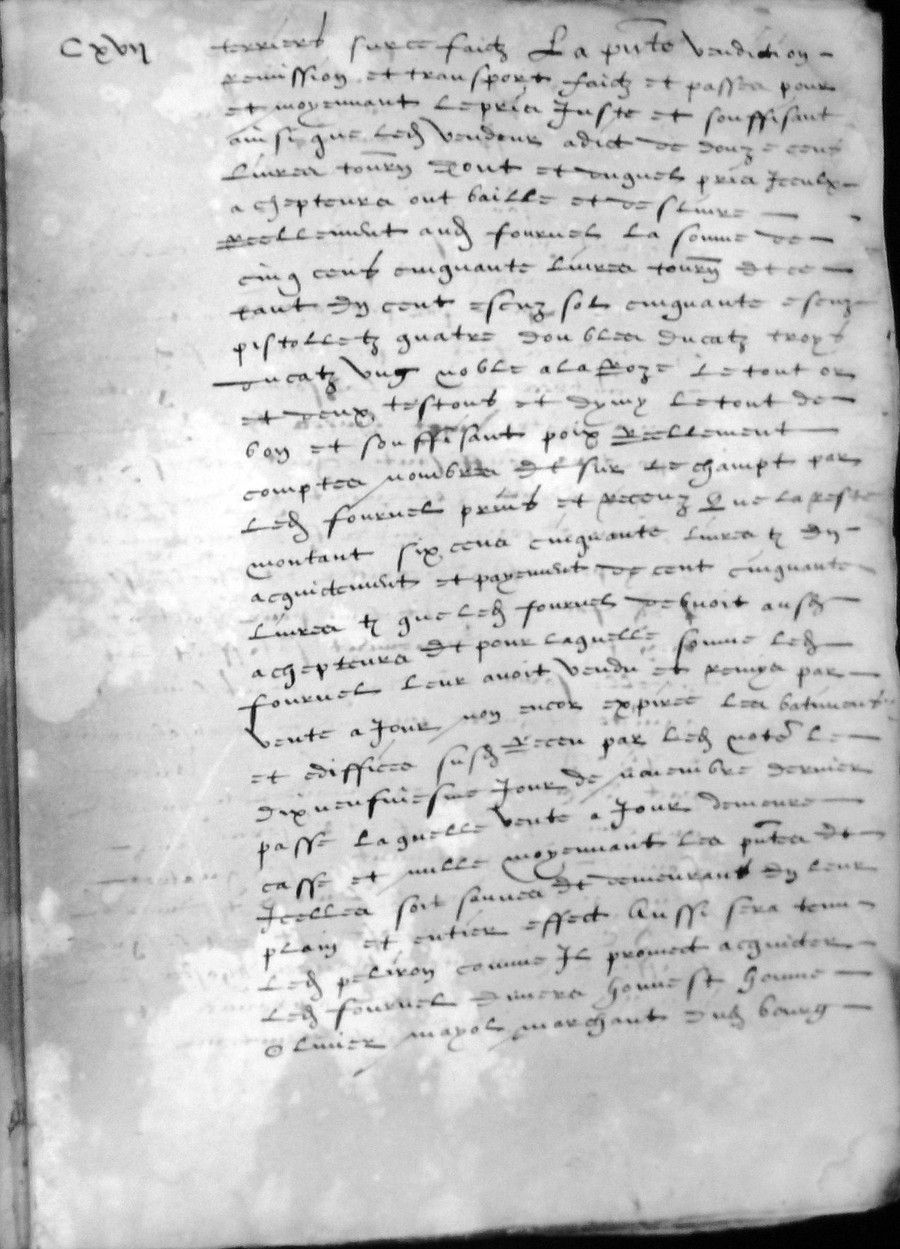 Cxvii
terriers sur ce faictz La pnte vendition
remission et transport faictz et passes pour
et moyennant le pris Juste et souffisant
ainsi que led vendeur a dict de douze cens
Livres tourn dont et duquel pris Iceulx
achepteurs ont baille et deslivre
reellement aud fournel la somme de
cinq cens cinquante livres tourn et ce
tant en cent escuz sol cinquante escuz
pistolletz quatre doubles ducatz troys
ducatz ung noble a la Roze le tout or
et deux testons et demy le tout de
bon et souffisant poix Reellement
comptes nombres et sur le champt par
Led fournel prins et receuz Que la reste
montant six cens cinquante livres tz en
acquictement et payement de cent cinquante
Livres tz que led fournel debvoit ausd
achepteurs et pour laquelle somme led
fournel leur avoit vendu et remys par
vente a Jour non encor expiree les batimens
et ediffices susd Receu par led note le
dixneufviesme Jour de novembre dernier
passe Laquelle vente a Jour demeure
casse et nulle moyennant les pntes et
Icelles soit sauves et demeurans en leur
plain et entier effect Aussi sera tenu
Led peliron comme Il promect acquicter
Led fournel envers honnest homme
Olivier mayol marchant dud bourg